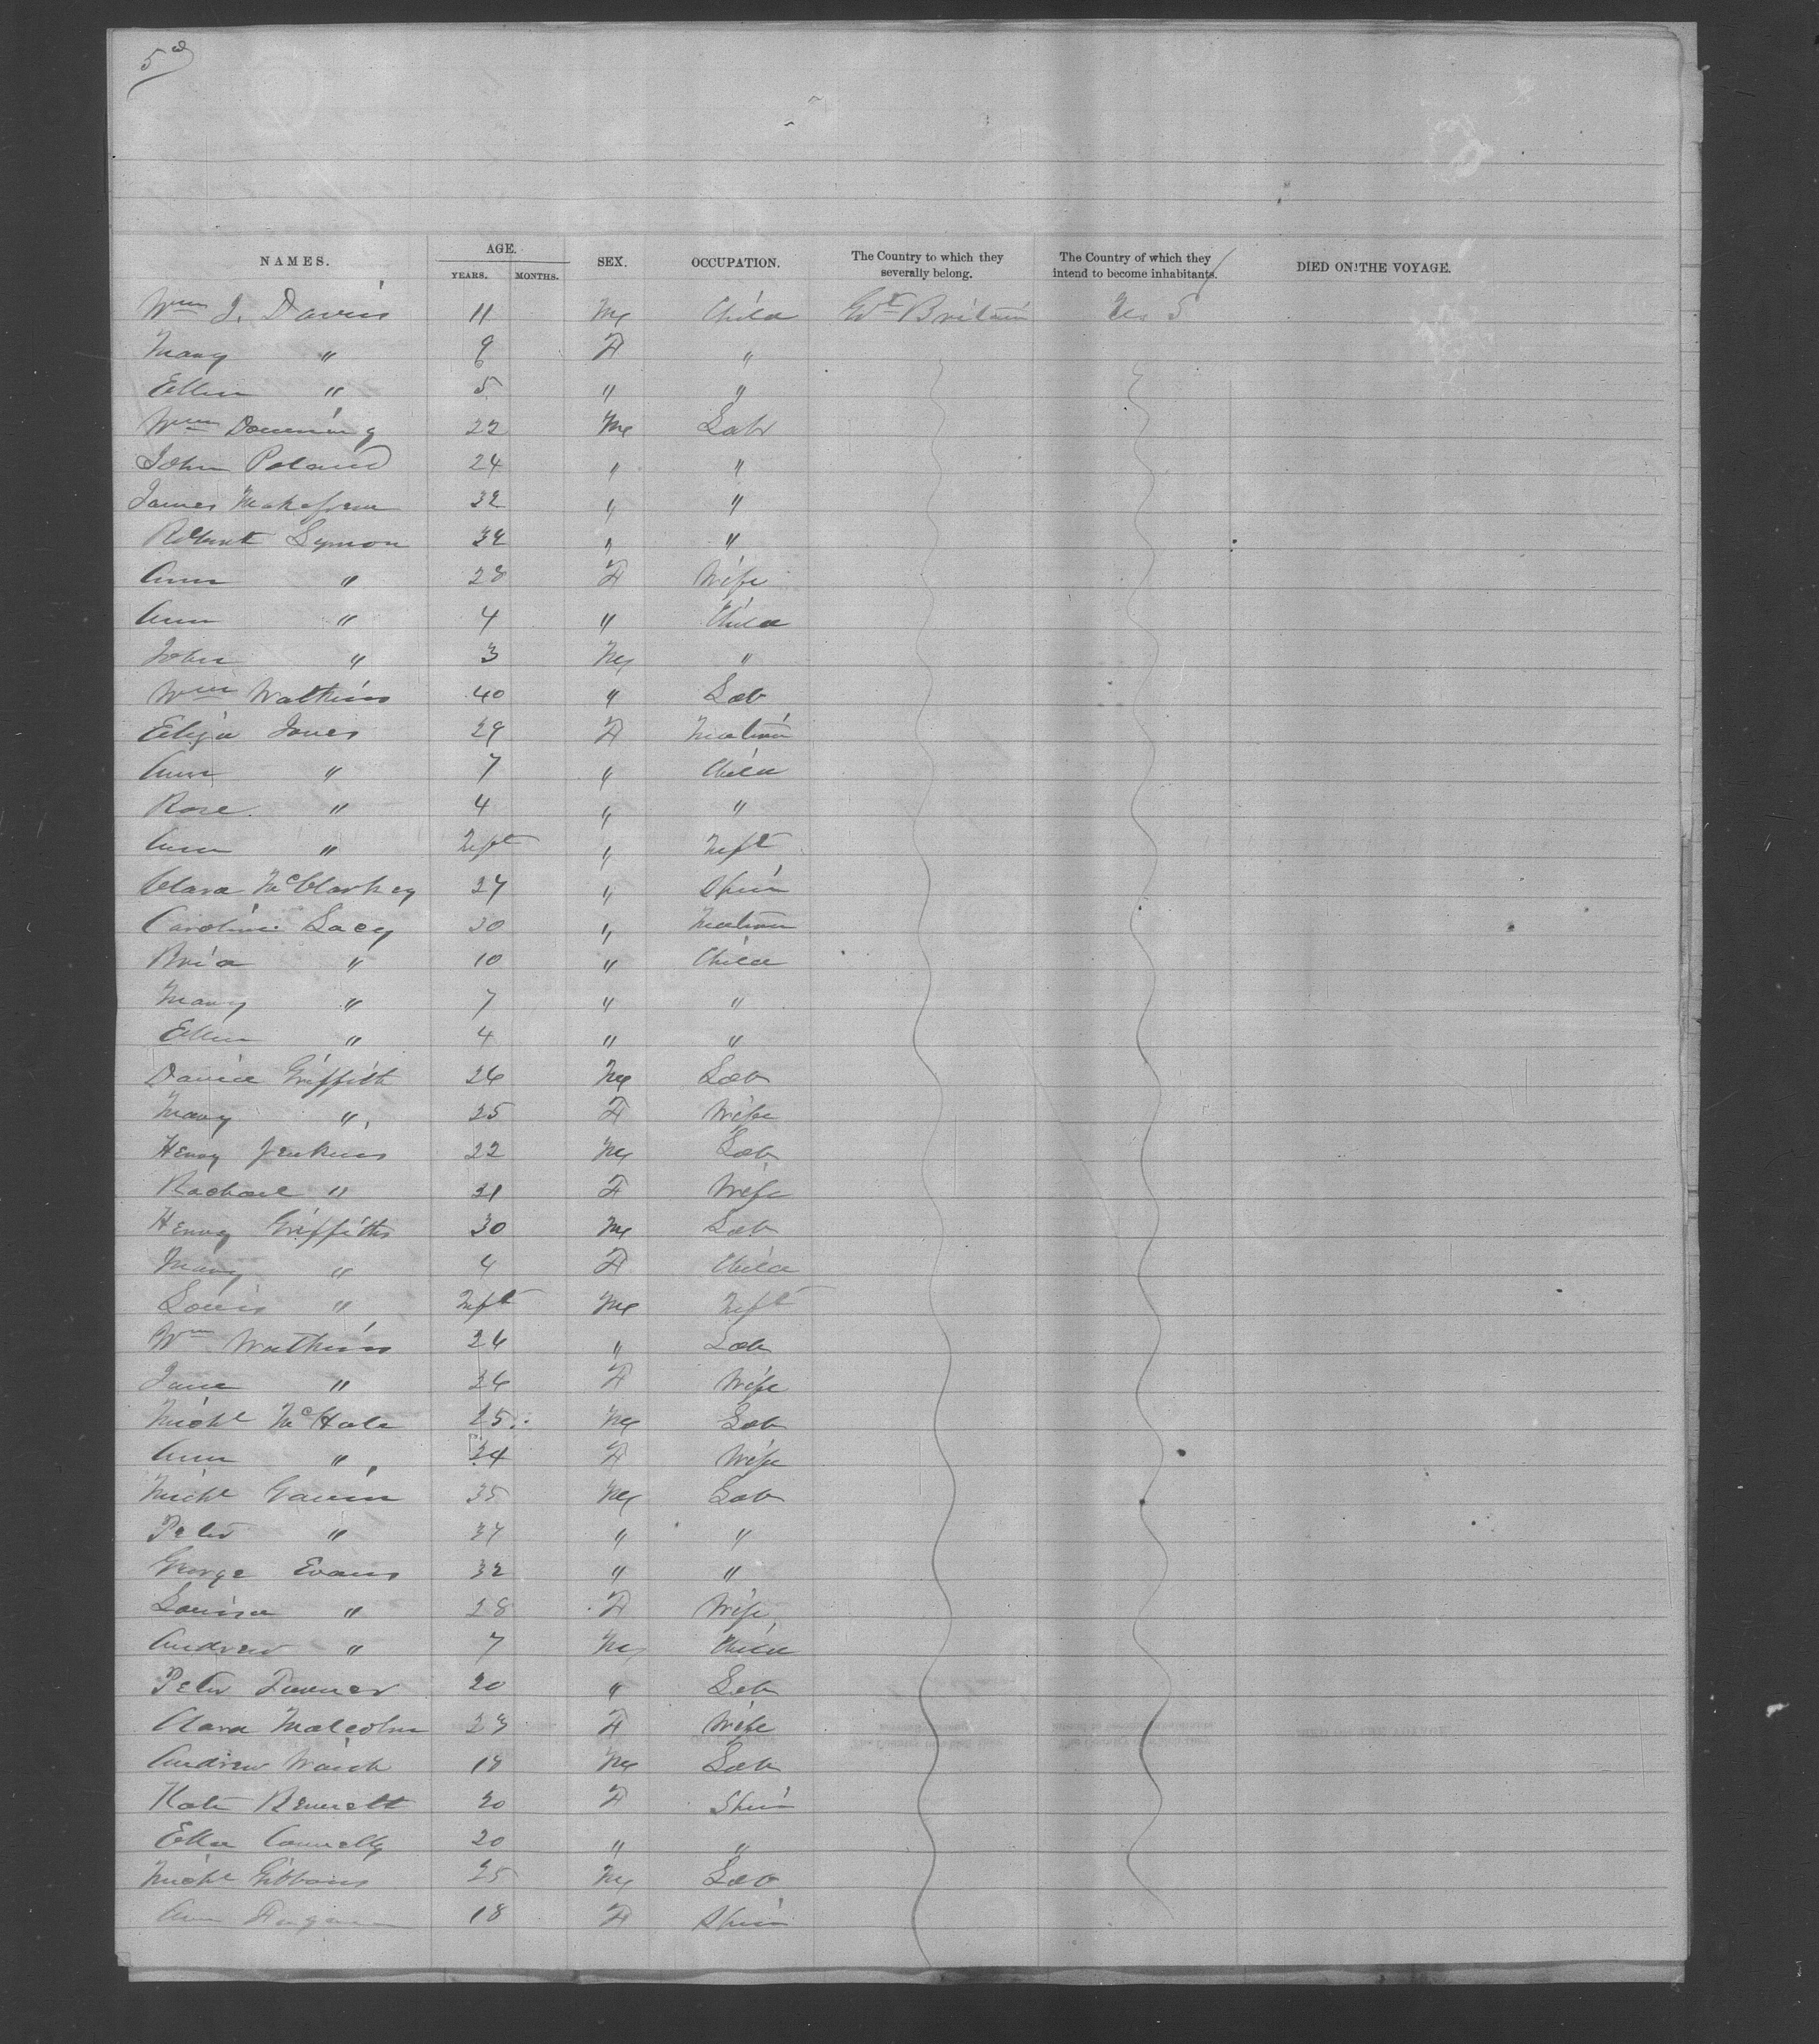 5
NAMES. AGE. YEARS. MONTHS. SEX. OCCUPATION. The Country to which they severally belong. The Country of which they intend to become inhabitants. DIED ON THE VOYAGE.
Wm J. Davis 11 M Child Gt Britain U S
Mary " 9 F "
Ellen " 5 " "
Wm Downing 22 M Labr
John Poland 24 " "
James 32 " "
Robert Symon 32 " "
Ann " 28 F Wife
Ann " 4 " Child
John " 3 M "
Wm Watkins 40 " Lab
Eliza Jones 29 F Matron
Ann " 7 " Child
Rose " 4 " "
Ann " Inft " Inft
Clara McClarkey 27 " Spin
Caroline Lacy 30 " Matron
Bria " 10 " Child
Mary " 7 " "
Ellen " 4 " "
David Griffith 26 M Lab
Mary " 25 F Wife
Henry Jenkins 22 M Lab
Rachael " 21 F Wife
Henry Griffiths 30 M Lab
Mary " 4 F Child
Louis " Inft M Inft
Wm Watkins 26 " Lab
Jane " 26 F Wife
Michl McHale 25 M Lab
Ann " 24 F Wife
Michl Gavin 35 M Lab
Peter " 37 " "
George Evans 32 " "
Louisa " 28 F Wife
Andrew " 7 M Child
Peter 20 " Lab
Clara Malcolm 23 F Wife
Andrew Walsh 18 M Lab
Kate Bennett 20 F Spin
Ellen Connelly 20 " "
Michl Gibbons 25 M Lab
Ann 18 F Spin